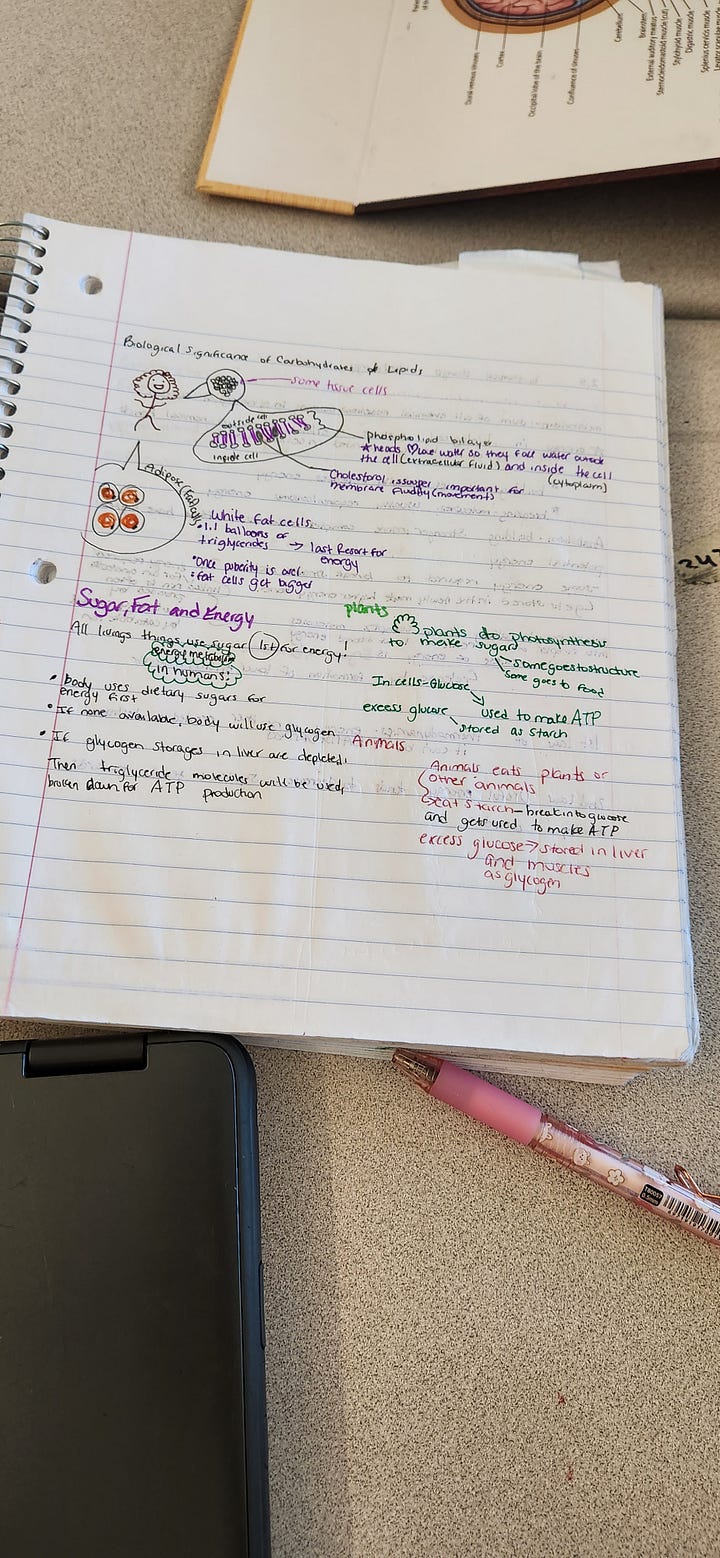 Dural venous sinuses
Cortex
Occipital lobe of the brain
Confluence of sinuses
Cerebellum
Brainstem
External auditory meatus
Sternocleidomastoid muscle (cut)
Stylohyoid muscle
Digastric muscle
Splenius cervicis muscle
Biological Significance of Carbohydrates & Lipids
some tissue cells
outside cell
inside cell
phospholipid bilayer
★ heads ♡ love water so they face water outside
the cell (extracellular fluid) and inside the cell
(cytoplasm)
Cholesterol is super important for
membrane fluidity (movement)
Adipose (Fat) cells
White fat cells
• 1.1 balloons of
triglycerides → last Resort for
energy
• Once puberty is over
• fat cells get bigger
Sugar, Fat and Energy
All livings things use sugar 1st for energy!
energy metabolism
in humans:
• body uses dietary sugars for
energy first
• If none available, body will use glycogen
• If glycogen storages in liver are depleted,
Then triglyceride molecules will be used,
broken down for ATP production
plants
plants do photosynthesis
to make sugar
some goes to structure
some goes to food
In cells = Glucose
used to make ATP
excess glucose
stored as starch
Animals
Animals eats plants or
other animals
eat starch - break into glucose
and gets used to make ATP
excess glucose → stored in liver
and muscles
as glycogen